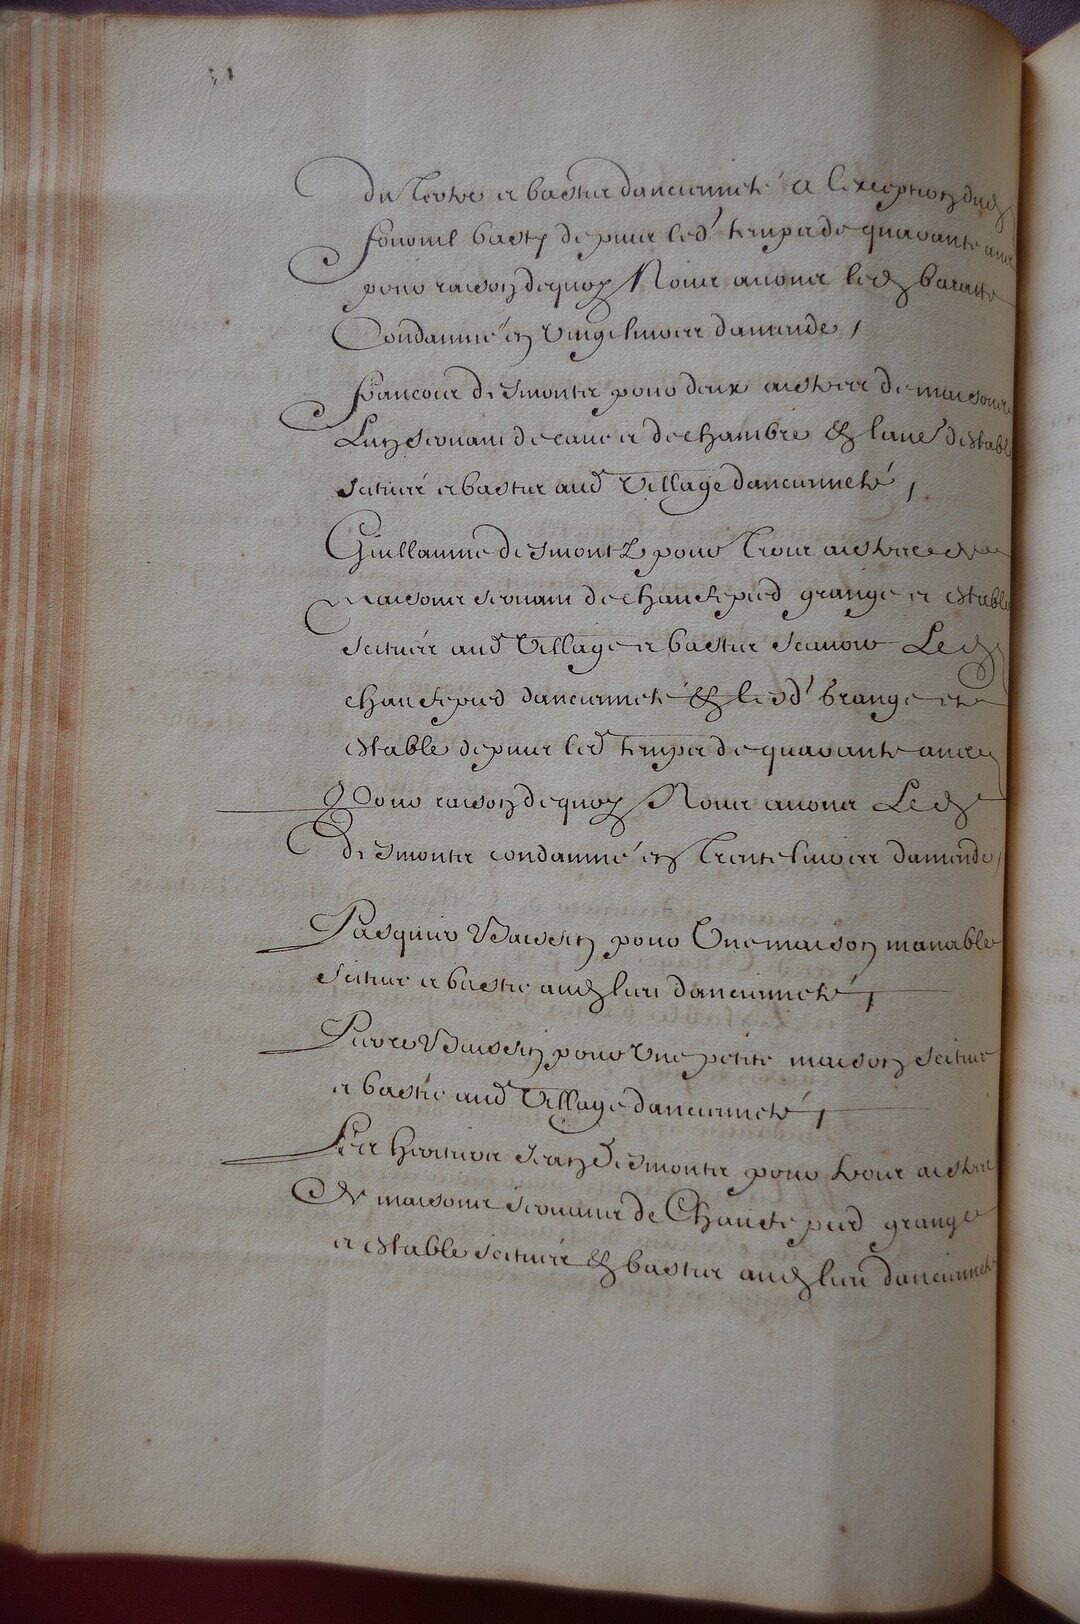 du Tertre et basties danciennete a Lexception dud
fournil basty depuis led temps de quarante ans
pour raison dequoy Nous auons led baratte
Condamné en Vingt liures damende,
francois desmonts pour deux aistres de maisons
Lun seruant de caue et de chambre & lautre destable
scitués et basties aud Village danciennete,
Guillaume desmontz pour Trois aistres de
maisons seruant de chaufepied grange et estable
scitués aud Village et basties scauoir Led
chaufepied danciennete & lesd Grange et
estable depuis led temps de quarante ans
Pour raison dequoy Nous auons Led
desmonts condamné en Trente liures damende,
Pasquier Baissin pour Une maison manable
scitue et bastie aud lieu danciennete,
Pierre Baissin pour Une petite maison scitue
et bastie aud Village danciennete,
Les heritiers Jean Desmonts pour trois aistres
de maisons seruants de Chaufepied grange
et estable scitués & basties aud lieu danciennete